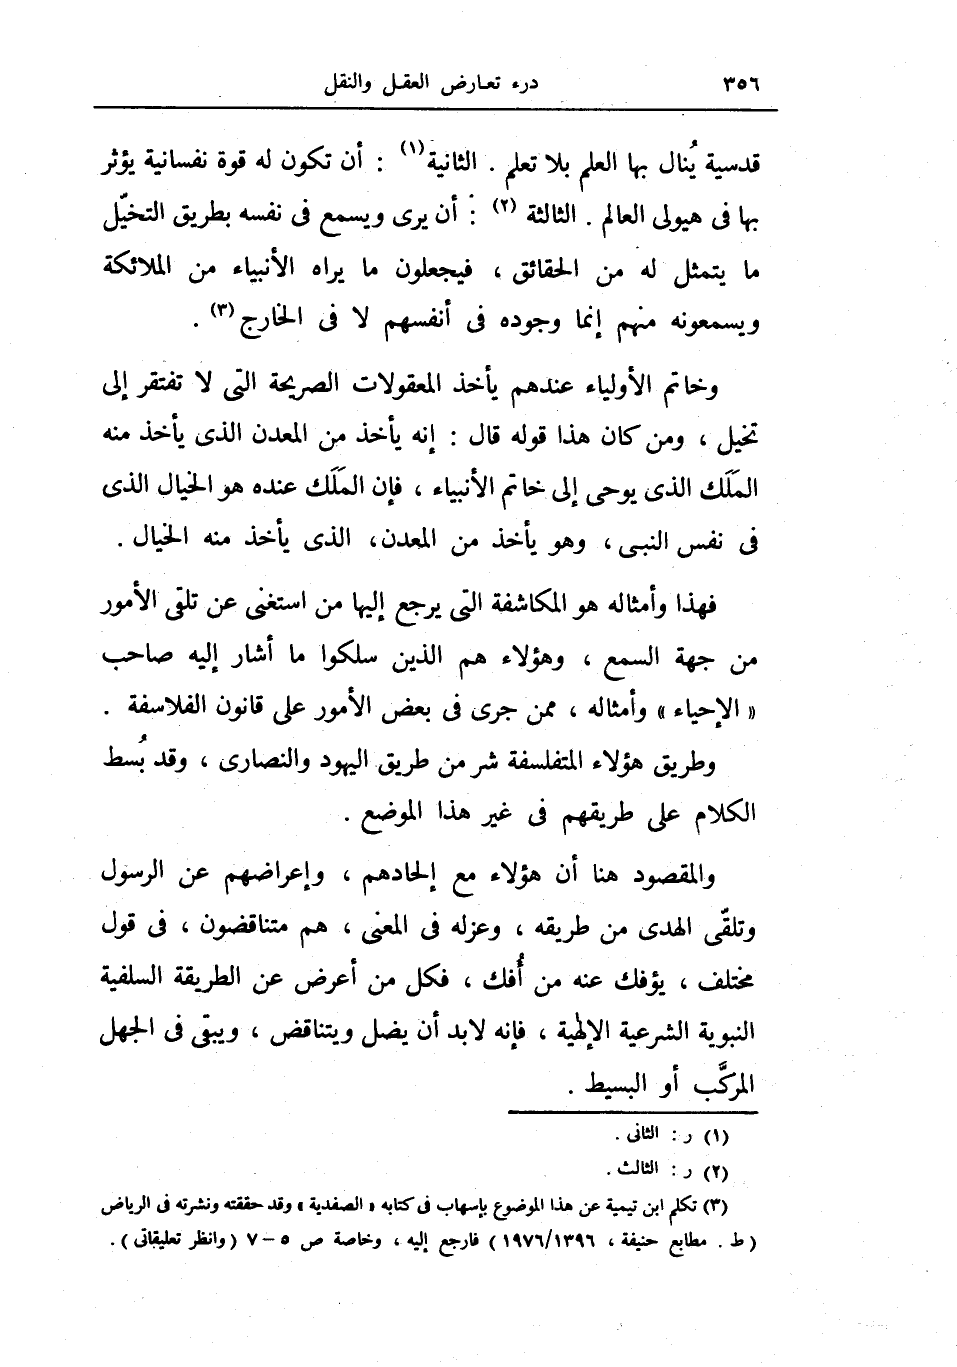 ٣٥٦ درء تعارض العقل والنقل
قدسية يُنال بها العلم بلا تعلم . الثانية(١) : أن تكون له قوة نفسانية يؤثر
بها فى هيولى العالم . الثالثة (٢) : أن يرى ويسمع فى نفسه بطريق التخيّل
ما يتمثل له من الحقائق ، فيجعلون ما يراه الأنبياء من الملائكة
ويسمعونه منهم إنما وجوده فى أنفسهم لا فى الخارج(٣) .
وخاتم الأولياء عندهم يأخذ المعقولات الصريحة التى لا تفتقر إلى
تخيل ، ومن كان هذا قوله قال : إنه يأخذ من المعدن الذى يأخذ منه
المَلَك الذى يوحى إلى خاتم الأنبياء ، فإن المَلَك عنده هو الخيال الذى
فى نفس النبى ، وهو يأخذ من المعدن، الذى يأخذ منه الخيال .
فهذا وأمثاله هو المكاشفة التى يرجع إليها من استغنى عن تلقى الأمور
من جهة السمع ، وهؤلاء هم الذين سلكوا ما أشار إليه صاحب
« الإحياء » وأمثاله ، ممن جرى فى بعض الأمور على قانون الفلاسفة .
وطريق هؤلاء المتفلسفة شر من طريق اليهود والنصارى ، وقد بُسط
الكلام على طريقهم فى غير هذا الموضع .
والمقصود هنا أن هؤلاء مع إلحادهم ، وإعراضهم عن الرسول
وتلقّى الهدى من طريقه ، وعزله فى المعنى ، هم متناقضون ، فى قول
مختلف ، يؤفك عنه من أُفك ، فكل من أعرض عن الطريقة السلفية
النبوية الشرعية الإلٰهية ، فإنه لابد أن يضل ويتناقض ، ويبقى فى الجهل
المركَّب أو البسيط .
(١) ر : الثانى .
(٢) ر : الثالث .
(٣) تكلم ابن تيمية عن هذا الموضوع بإسهاب فى كتابه « الصفدية » وقد حققته ونشرته فى الرياض
( ط . مطابع حنيفة ، ١٩٧٦/١٣٩٦ ) فارجع إليه ، وخاصة ص ٥ – ٧ ( وانظر تعليقاتى ) .